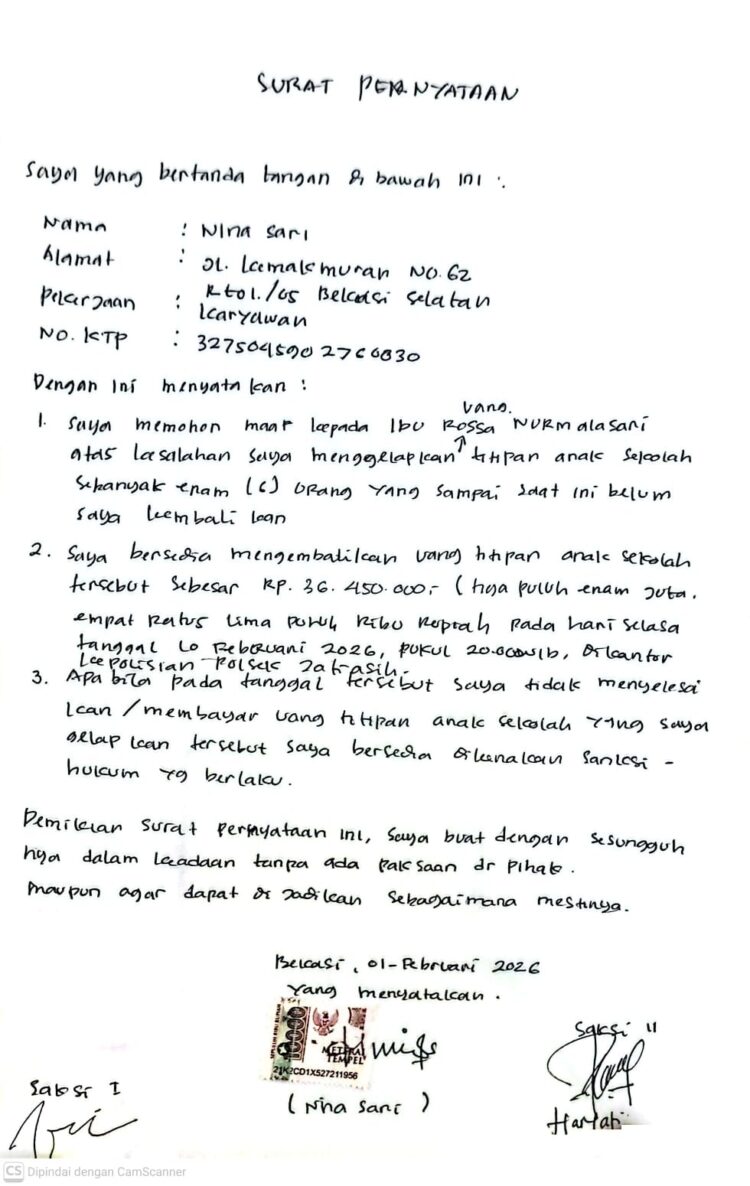 SURAT PERNYATAAN
Saya yang bertanda tangan di bawah ini :
Nama : Nina Sari
Alamat : Jl. Kemakmuran No. 62
Rt01./05 Bekasi Selatan
Pekerjaan : Karyawan
No. KTP :
Dengan ini menyatakan :
uang.
1. Saya memohon maaf kepada Ibu Rossa NURmalasari
atas kesalahan saya menggelapkan ↑ titipan anak sekolah
sebanyak enam (6) orang yang sampai saat ini belum
saya kembali kan
2. Saya bersedia mengembalikan uang titipan anak sekolah
tersebut sebesar Rp. 36.450.000,- (tiga puluh enam juta.
empat Ratus lima puluh Ribu Rupiah pada hari selasa
tanggal 10 Februari 2026, pukul 20.00 wib, dikantor
kepolisian Polsek Jatiasih.
3. Apa bila pada tanggal tersebut saya tidak menyelesai
kan / membayar uang titipan anak sekolah yang saya
gelap kan tersebut saya bersedia dikenakan sanksi -
hukum yg berlaku.
Demikian surat pernyataan ini, saya buat dengan sesungguh
nya dalam keadaan tanpa ada paksaan dr pihak.
maupun agar dapat di jadikan sebagaimana mestinya.
Bekasi, 01-Februari 2026
Yang menyatakan.
10000
METERAI
TEMPEL
21K2CD1X527211956
(Nina Sari)
Saksi II
Saksi I
CS Dipindai dengan CamScanner